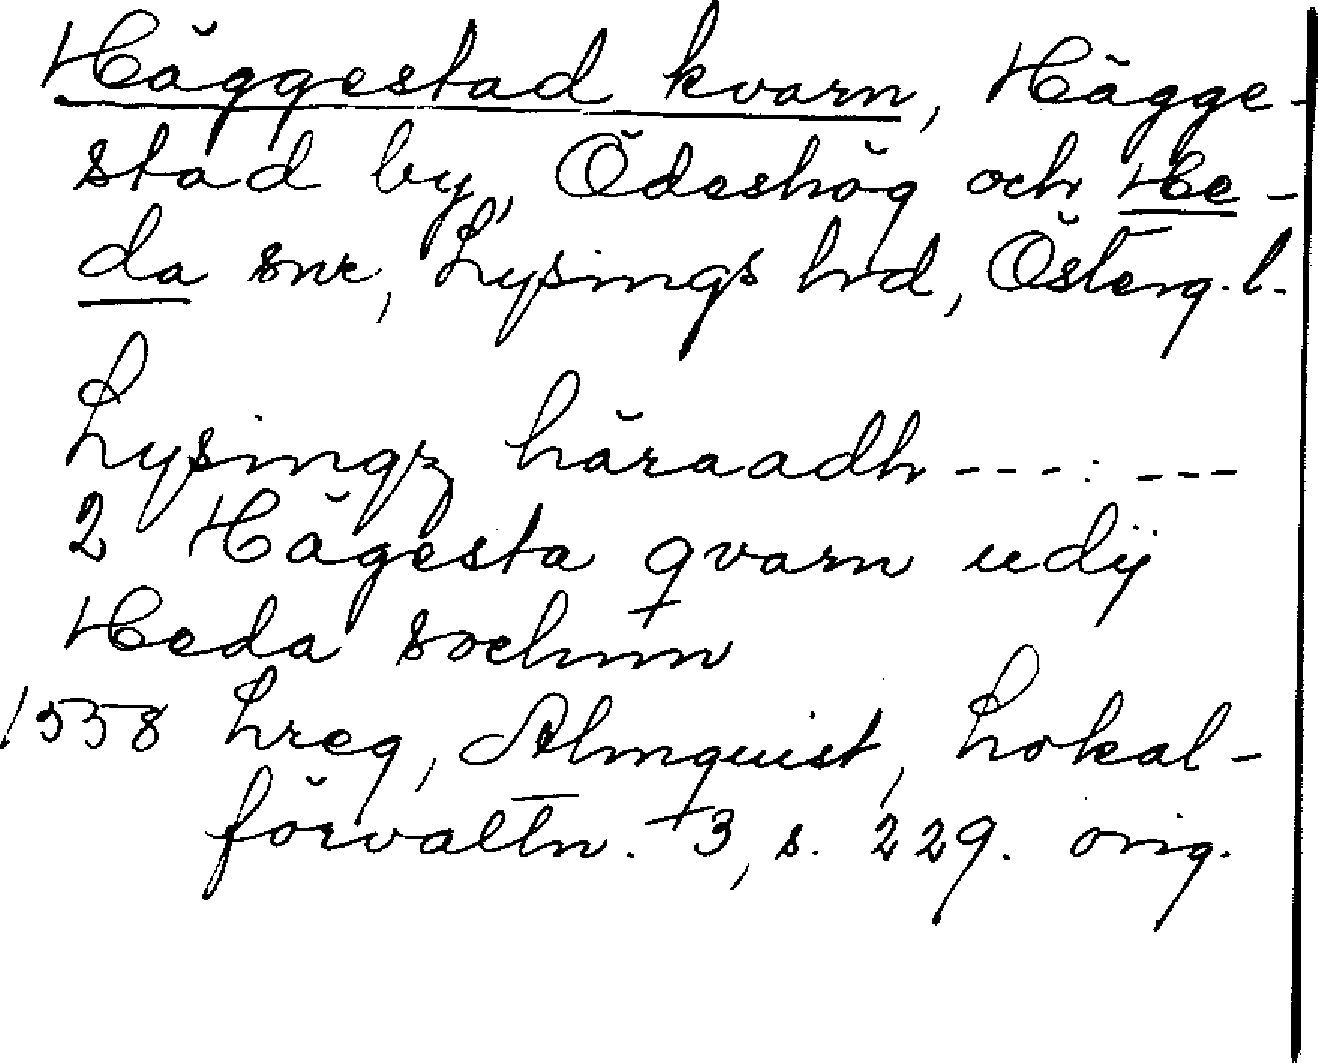 Häggestad kvarn, Hägge-
stad by, Ödeshög och He-
da snr, Lysings hd, Österg.l.
Lysingz häraadh ---:---
2 Hägesta qvarn udij
Heda sochnn
1558 Lreg, Almquist, Lokal-
förvaltn. 3, s. 229. orig.